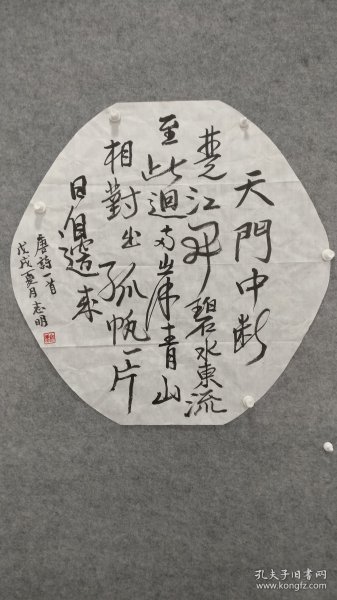 天門中断
楚江開碧水東流
至此迴両岸青山
相對出孤帆一片
日邊来
唐詩一首
戊戌夏月志明
孔夫子旧书网
www.kongfz.com